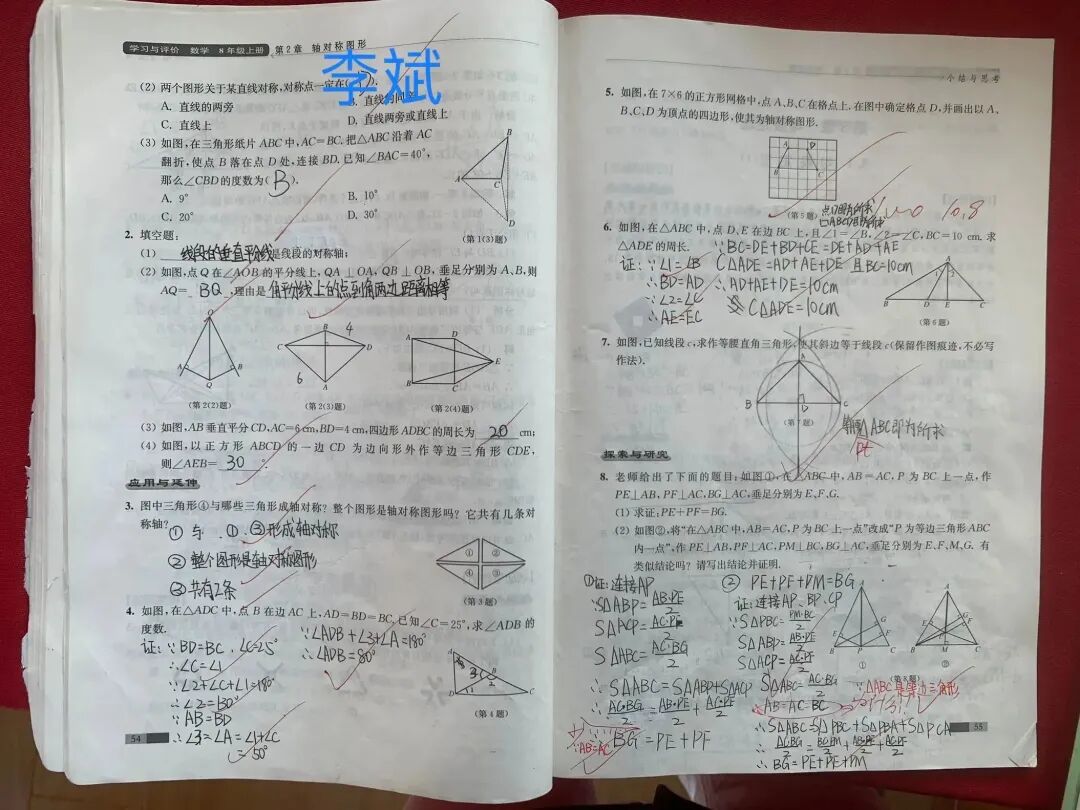 学习与评价 数学 8年级上册 第2章 轴对称图形
李斌
(2) 两个图形关于某直线对称,对称点一定在(D).
A. 直线的两旁
B. 直线的同旁
C. 直线上
D. 直线两旁或直线上
(3) 如图,在三角形纸片ABC中,AC=BC.把△ABC沿着AC
翻折,使点B落在点D处,连接BD.已知∠BAC=40°,
那么∠CBD的度数为(B).
A. 9°
B. 10°
C. 20°
D. 30°
B
A
C
D
(第1(3)题)
2. 填空题:
(1) 线段的垂直平分线是线段的对称轴;
(2) 如图,点Q在∠AOB的平分线上,QA⊥OA,QB⊥OB,垂足分别为A、B,则
AQ= BQ ,理由是角平分线上的点到角两边距离相等
O
A
B
Q
(第2(2)题)
B 4
C
D
6
A
(第2(3)题)
A
D
E
B
C
(第2(4)题)
(3) 如图,AB垂直平分CD,AC=6 cm,BD=4 cm,四边形ADBC的周长为 20 cm;
(4) 如图,以正方形ABCD的一边CD为边向形外作等边三角形CDE,
则∠AEB= 30 °.
应用与延伸
3. 图中三角形④与哪些三角形成轴对称?整个图形是轴对称图形吗?它共有几条对
称轴?
① 与 ①、③形成轴对称
② 整个图形是轴对称图形
③ 共有2条
① ②
④ ③
(第3题)
4. 如图,在△ADC中,点B在边AC上,AD=BD=BC,已知∠C=25°,求∠ADB的
度数.
证:∵BD=BC,∠C=25°
∴∠C=∠1
∵∠2+∠C+∠1=180°
∴∠2=130°
∵AB=BD
∴∠3=∠A=∠1+∠C
=50°
∵∠ADB+∠3+∠A=180°
∴∠ADB=80°
A
B
D
C
(第4题)
54
小结与思考
5. 如图,在7×6的正方形网格中,点A、B、C在格点上.在图中确定格点D,并画出以A、
B、C、D为顶点的四边形,使其为轴对称图形.
A
D
B
C
(第5题)
10,8
6. 如图,在△ABC中,点D、E在边BC上,且∠1=∠B,∠2=∠C,BC=10 cm.求
△ADE的周长.
∵BC=DE+BD+CE=DE+AD+AE
证:∵∠1=∠B
C△ADE=AD+AE+DE 且BC=10cm
∴BD=AD
∴AD+AE+DE=10cm
∵∠2=∠C
C△ADE=10cm
∴AE=EC
A
B
D
E
C
(第6题)
7. 如图,已知线段c,求作等腰直角三角形,使其斜边等于线段c(保留作图痕迹,不必写
作法).
A
B
C
D
(第7题)
△ABC即为所求
Rt
探索与研究
8. 老师给出了下面的题目:如图①,在△ABC中,AB=AC,P为BC上一点,作
PE⊥AB,PF⊥AC,BG⊥AC,垂足分别为E、F、G.
(1) 求证:PE+PF=BG.
(2) 如图②,将“在△ABC中,AB=AC,P为BC上一点”改成“P为等边三角形ABC
内一点”,作PE⊥AB,PF⊥AC,PM⊥BC,BG⊥AC,垂足分别为E、F、M、G. 有
类似结论吗?请写出结论并证明.
①证:连接AP
∵S△ABP=AB·PE/2
S△ACP=AC·PF/2
S△ABC=AC·BG/2
∴S△ABC=S△ABP+S△ACP
∴AC·BG/2=AB·PE/2+AC·PF/2
∵AB=AC
BG=PE+PF
② PE+PF+PM=BG
证:连接AP、BP、CP
∵S△PBC=PM·BC/2
S△ABP=AB·PE/2
S△ACP=AC·PF/2
S△ABC=AC·BG/2
∵△ABC是等边三角形
∴AB=AC=BC
∴S△ABC=S△PBC+S△PBA+S△PCA
∴AC·BG/2=BC·PM/2+AB·PE/2+AC·PF/2
∴BG=PE+PF+PM
A
G
E
F
B
P
C
①
A
G
E
F
B
M
C
②
(第8题)
55